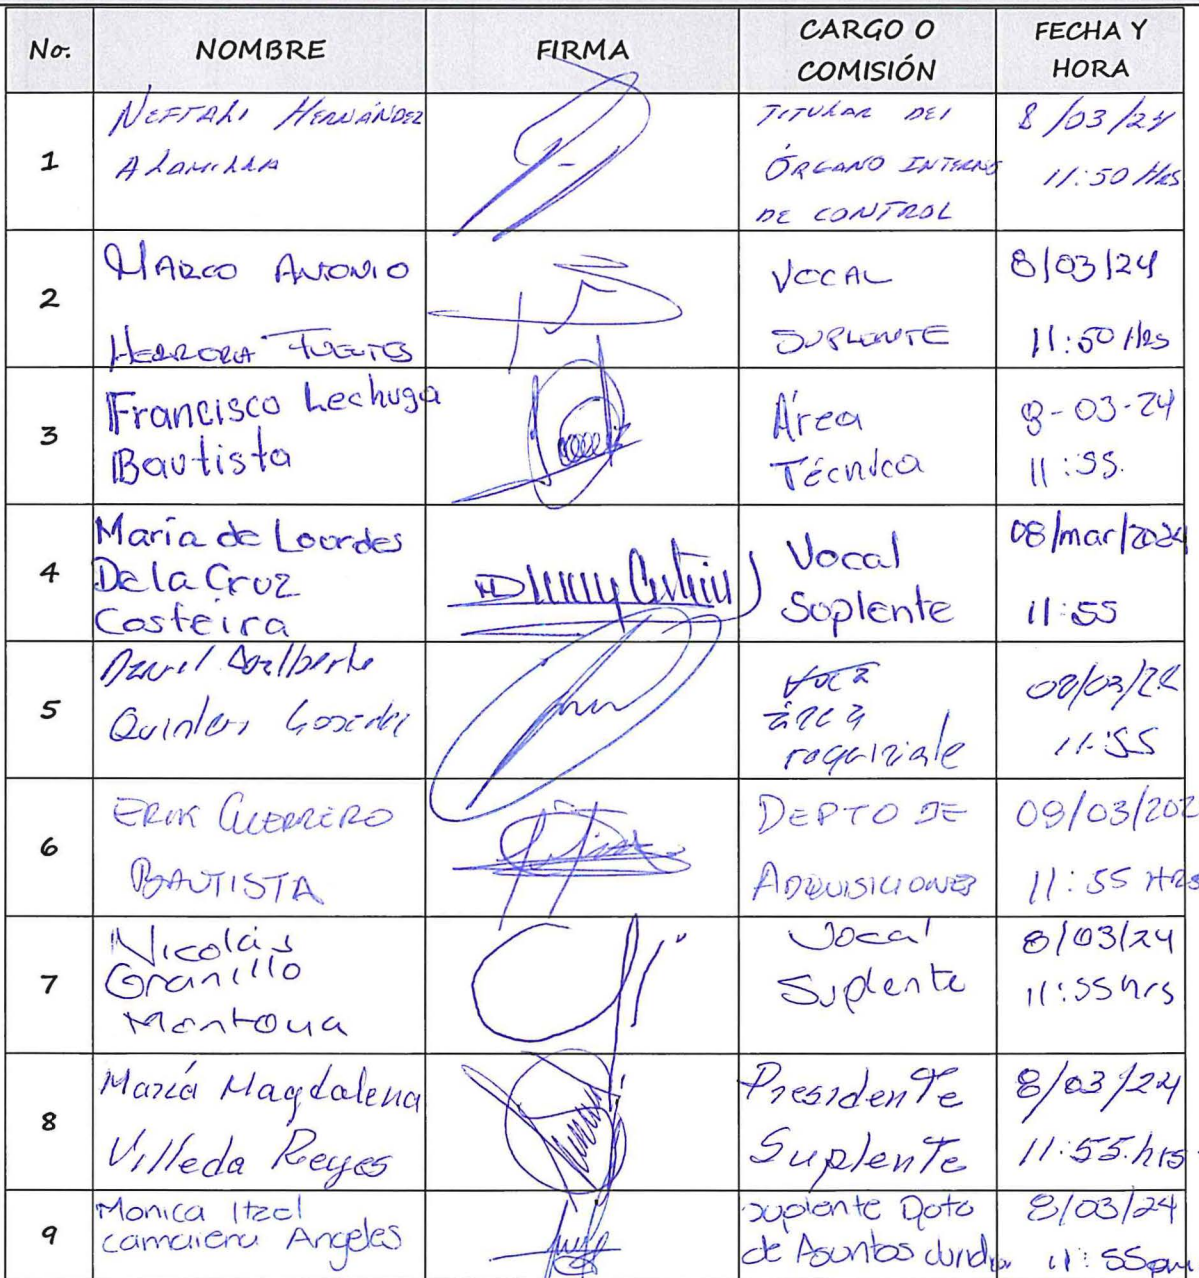 No. NOMBRE FIRMA CARGO O COMISIÓN FECHA Y HORA
1
NEFTALI HERNÁNDEZ
ALAMILLA
TITULAR DEL
ÓRGANO INTERNO
DE CONTROL
8/03/24
11:50 Hrs
2
MARCO ANTONIO
HERRERA FUENTES
VOCAL
SUPLENTE
8/03/24
11:50 Hrs
3
Francisco Lechuga
Bautista
Área
Técnica
8-03-24
11:55.
4
María de Lourdes
De la Cruz
Costeira
Vocal
Soplente
08/mar/2024
11:55
5
Quinter
área
08/03/24
11:55
6
ERIK GUERRERO
BAUTISTA
DEPTO DE
ADQUISICIONES
08/03/202
11:55 HRS
7
Nicolás
Granillo
Montoya
Vocal
Suplente
8/03/24
11:55 hrs
8
María Magdalena
Villeda Reyes
Presidente
Suplente
8/03/24
11:55.hrs
9
Monica Itzel
Camarena Angeles
suplente Dpto
de Asuntos
8/03/24
11:55pm